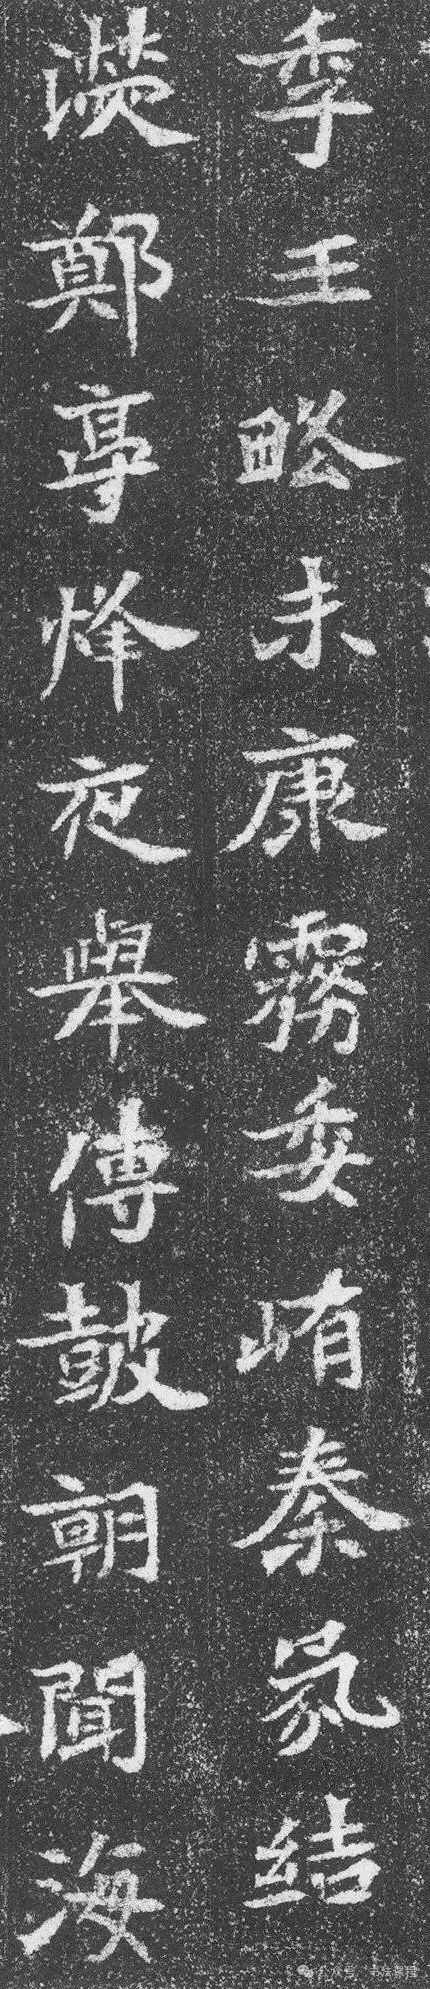 季王略未康霧委崤秦氛結
滎鄭亭烽夜舉傳鼓朝聞海
公众号